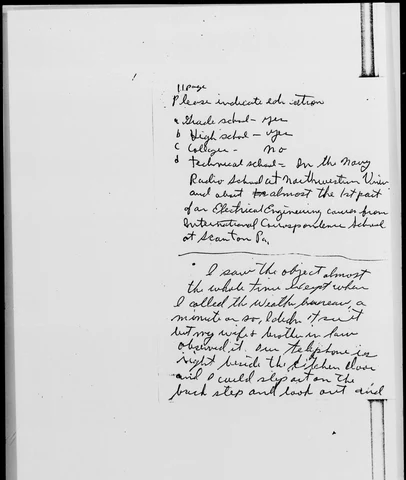 11 page
Please indicate education
a Grade school - yes
b High school - yes
c College - no
d Technical school = In the Navy
Radio School at Northwestern Univ
and about almost the 1st part
of an Electrical Engineering course from
International Correspondence School
at Scanton Pa,
I saw the object almost
the whole time except when
I called the Weather bureau, a
minute or so, I didn't see it
but my wife & brother in law
observed it. Our telephone is
right beside the kitchen door
and I could step out on the
back step and look out and